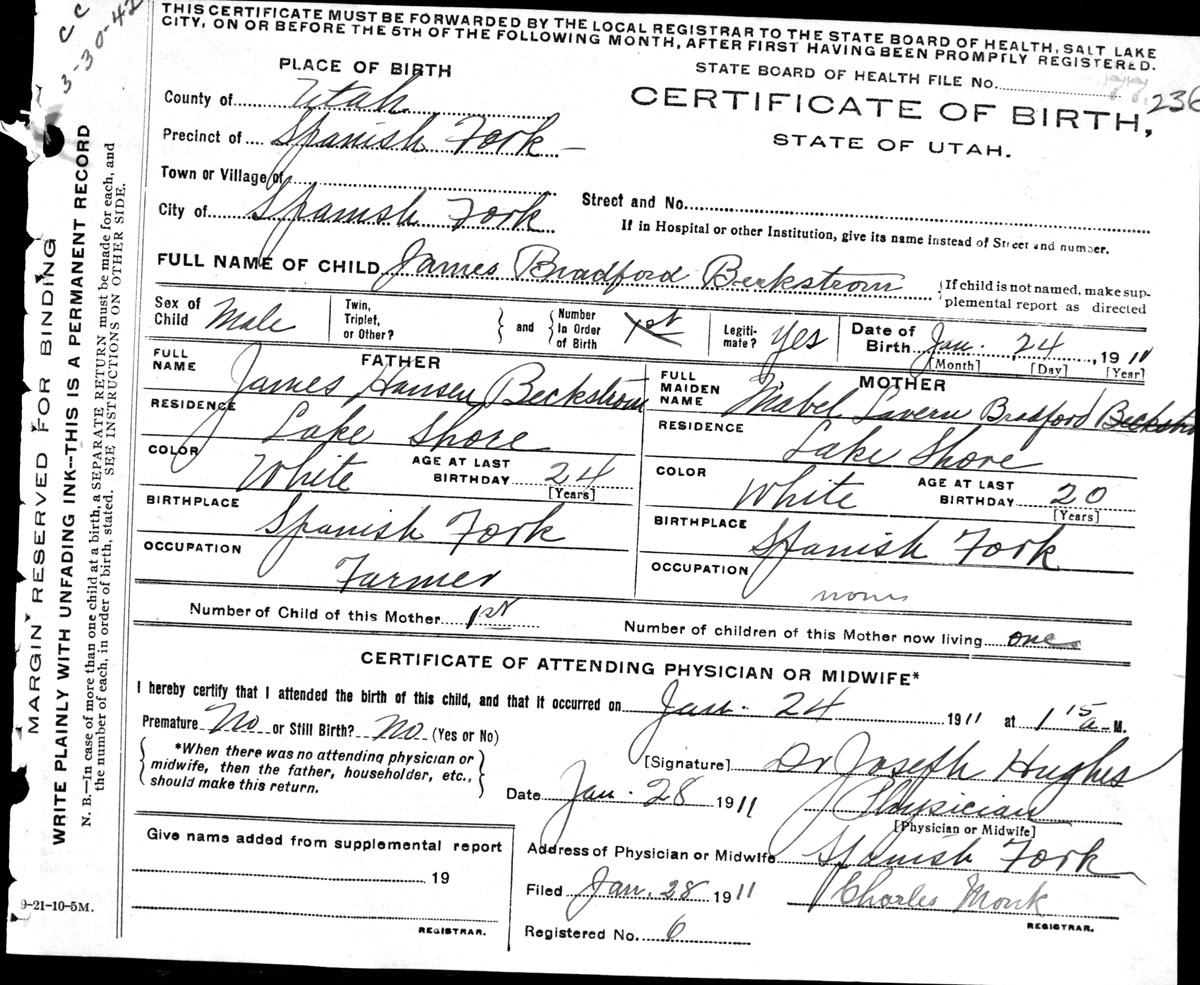 THIS CERTIFICATE MUST BE FORWARDED BY THE LOCAL REGISTRAR TO THE STATE BOARD OF HEALTH, SALT LAKE
CITY, ON OR BEFORE THE 5TH OF THE FOLLOWING MONTH, AFTER FIRST HAVING BEEN PROMPTLY REGISTERED.
CC
3-30-42
PLACE OF BIRTH
STATE BOARD OF HEALTH FILE No. 236
County of Utah
CERTIFICATE OF BIRTH,
Precinct of Spanish Fork
STATE OF UTAH.
Town or Village of
Street and No.
City of Spanish Fork
If in Hospital or other Institution, give its name instead of Street and number.
FULL NAME OF CHILD James Bradford Beckstrom
{If child is not named, make sup-
plemental report as directed
Sex of Child Male
Twin, Triplet, or Other?
and
Number In Order of Birth 1st
Legiti- mate? Yes
Date of Birth Jan. 24, 1911
[Month] [Day] [Year]
FATHER
FULL NAME James Hansen Beckstrom
RESIDENCE Lake Shore
COLOR White AGE AT LAST BIRTHDAY 24
[Years]
BIRTHPLACE Spanish Fork
OCCUPATION Farmer
MOTHER
FULL MAIDEN NAME Mabel Lavern Bradford Beckstro
RESIDENCE Lake Shore
COLOR White AGE AT LAST BIRTHDAY 20
[Years]
BIRTHPLACE Spanish Fork
OCCUPATION
Number of Child of this Mother 1st
Number of children of this Mother now living one
CERTIFICATE OF ATTENDING PHYSICIAN OR MIDWIFE*
I hereby certify that I attended the birth of this child, and that it occurred on Jan. 24 1911 at 1 15 a-M.
Premature No or Still Birth? No (Yes or No)
*When there was no attending physician or
midwife, then the father, householder, etc.,
should make this return.
[Signature] Dr Joseph Hughes
Date Jan. 28 1911 Physician
[Physician or Midwife]
Address of Physician or Midwife Spanish Fork
Filed Jan. 28 1911 Charles Monk
REGISTRAR.
Registered No. 6
Give name added from supplemental report
19
REGISTRAR.
9-21-10-5M.
MARGIN RESERVED FOR BINDING
WRITE PLAINLY WITH UNFADING INK--THIS IS A PERMANENT RECORD
N. B.—In case of more than one child at a birth, a SEPARATE RETURN must be made for each, and
the number of each, in order of birth, stated. SEE INSTRUCTIONS ON OTHER SIDE.